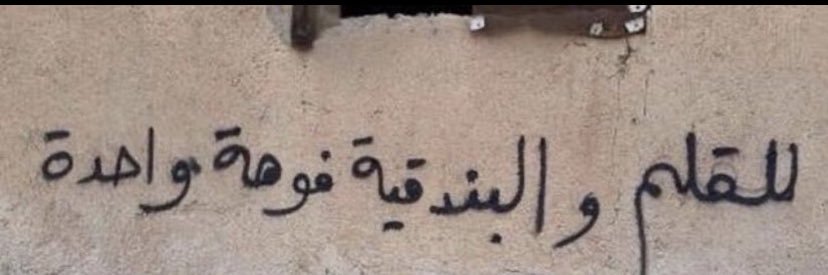 للقلم و البندقية فوهة واحدة